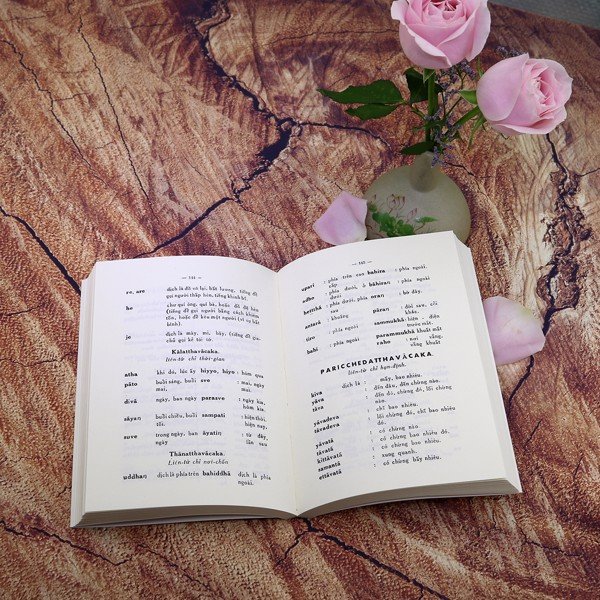 — 144 —
re, are dịch là đồ có lại, bất lương, tiếng để
gọi người thấp hèn, tiếng khinh bỉ.
he chư quí ông, quí bà, hoặc để hèn
(tiếng để gọi người bằng cách khiêm
tốn, hoặc để kêu một người vì sự bất
kính).
je dịch là mày, nè, hãy, (tiếng để
chủ gọi kẻ tôi tớ.
Kālatthavācaka.
Liên-từ chỉ thời-gian
atha khi đó, lúc ấy hiyyo, hāyo : hôm qua
pāto buổi sáng, suve : mai, ngày
mai,
divā ngày, ban ngày parasve : ngày kia,
hôm kia.
sāyaṃ buổi chiều, buổi sampati : hiện thời,
tối. hiện nay.
suve trong ngày, ban āyatiṃ : từ đây,
ngày lần sau
Thānatthavācaka.
Liên-từ chỉ nơi-chốn
uddhaṃ dịch là phía trên bahiddhā dịch là phía
ngoài.
— 145 —
upari : phía trên cao bahira : phía ngoài.
adho : phía dưới, ở bāhiraṃ : phía ngoài.
heṭṭhā : phía dưới, oraṃ : bờ đây.
antarā : khoảng pāraṃ : đối sau, cõi
khác.
tiro : phía ngoài sammukhā : hiện - diện
trước mặt.
bahi : phía ngoài parammukhā khuất mặt
raho : nơi vắng,
vắng khuất
PARICCHEDATTHAVĀCAKA.
Liên-từ chỉ hạn-định.
kīva dịch là : mấy, bao nhiêu.
yāva : đến đâu, đến chừng nào.
tāva : đến đó, chừng đó, lối chừng
nào.
yāvadeva : chỉ bao nhiêu.
tāvadeva : đến đó, chừng đó, chỉ bao nhiêu.
yāvatā : có chừng nào.
tāvatā : có chừng bao nhiêu đó.
kittāvatā : có chừng bao nhiêu.
samantā : xung quanh.
ettāvatā : có chừng bấy nhiêu.